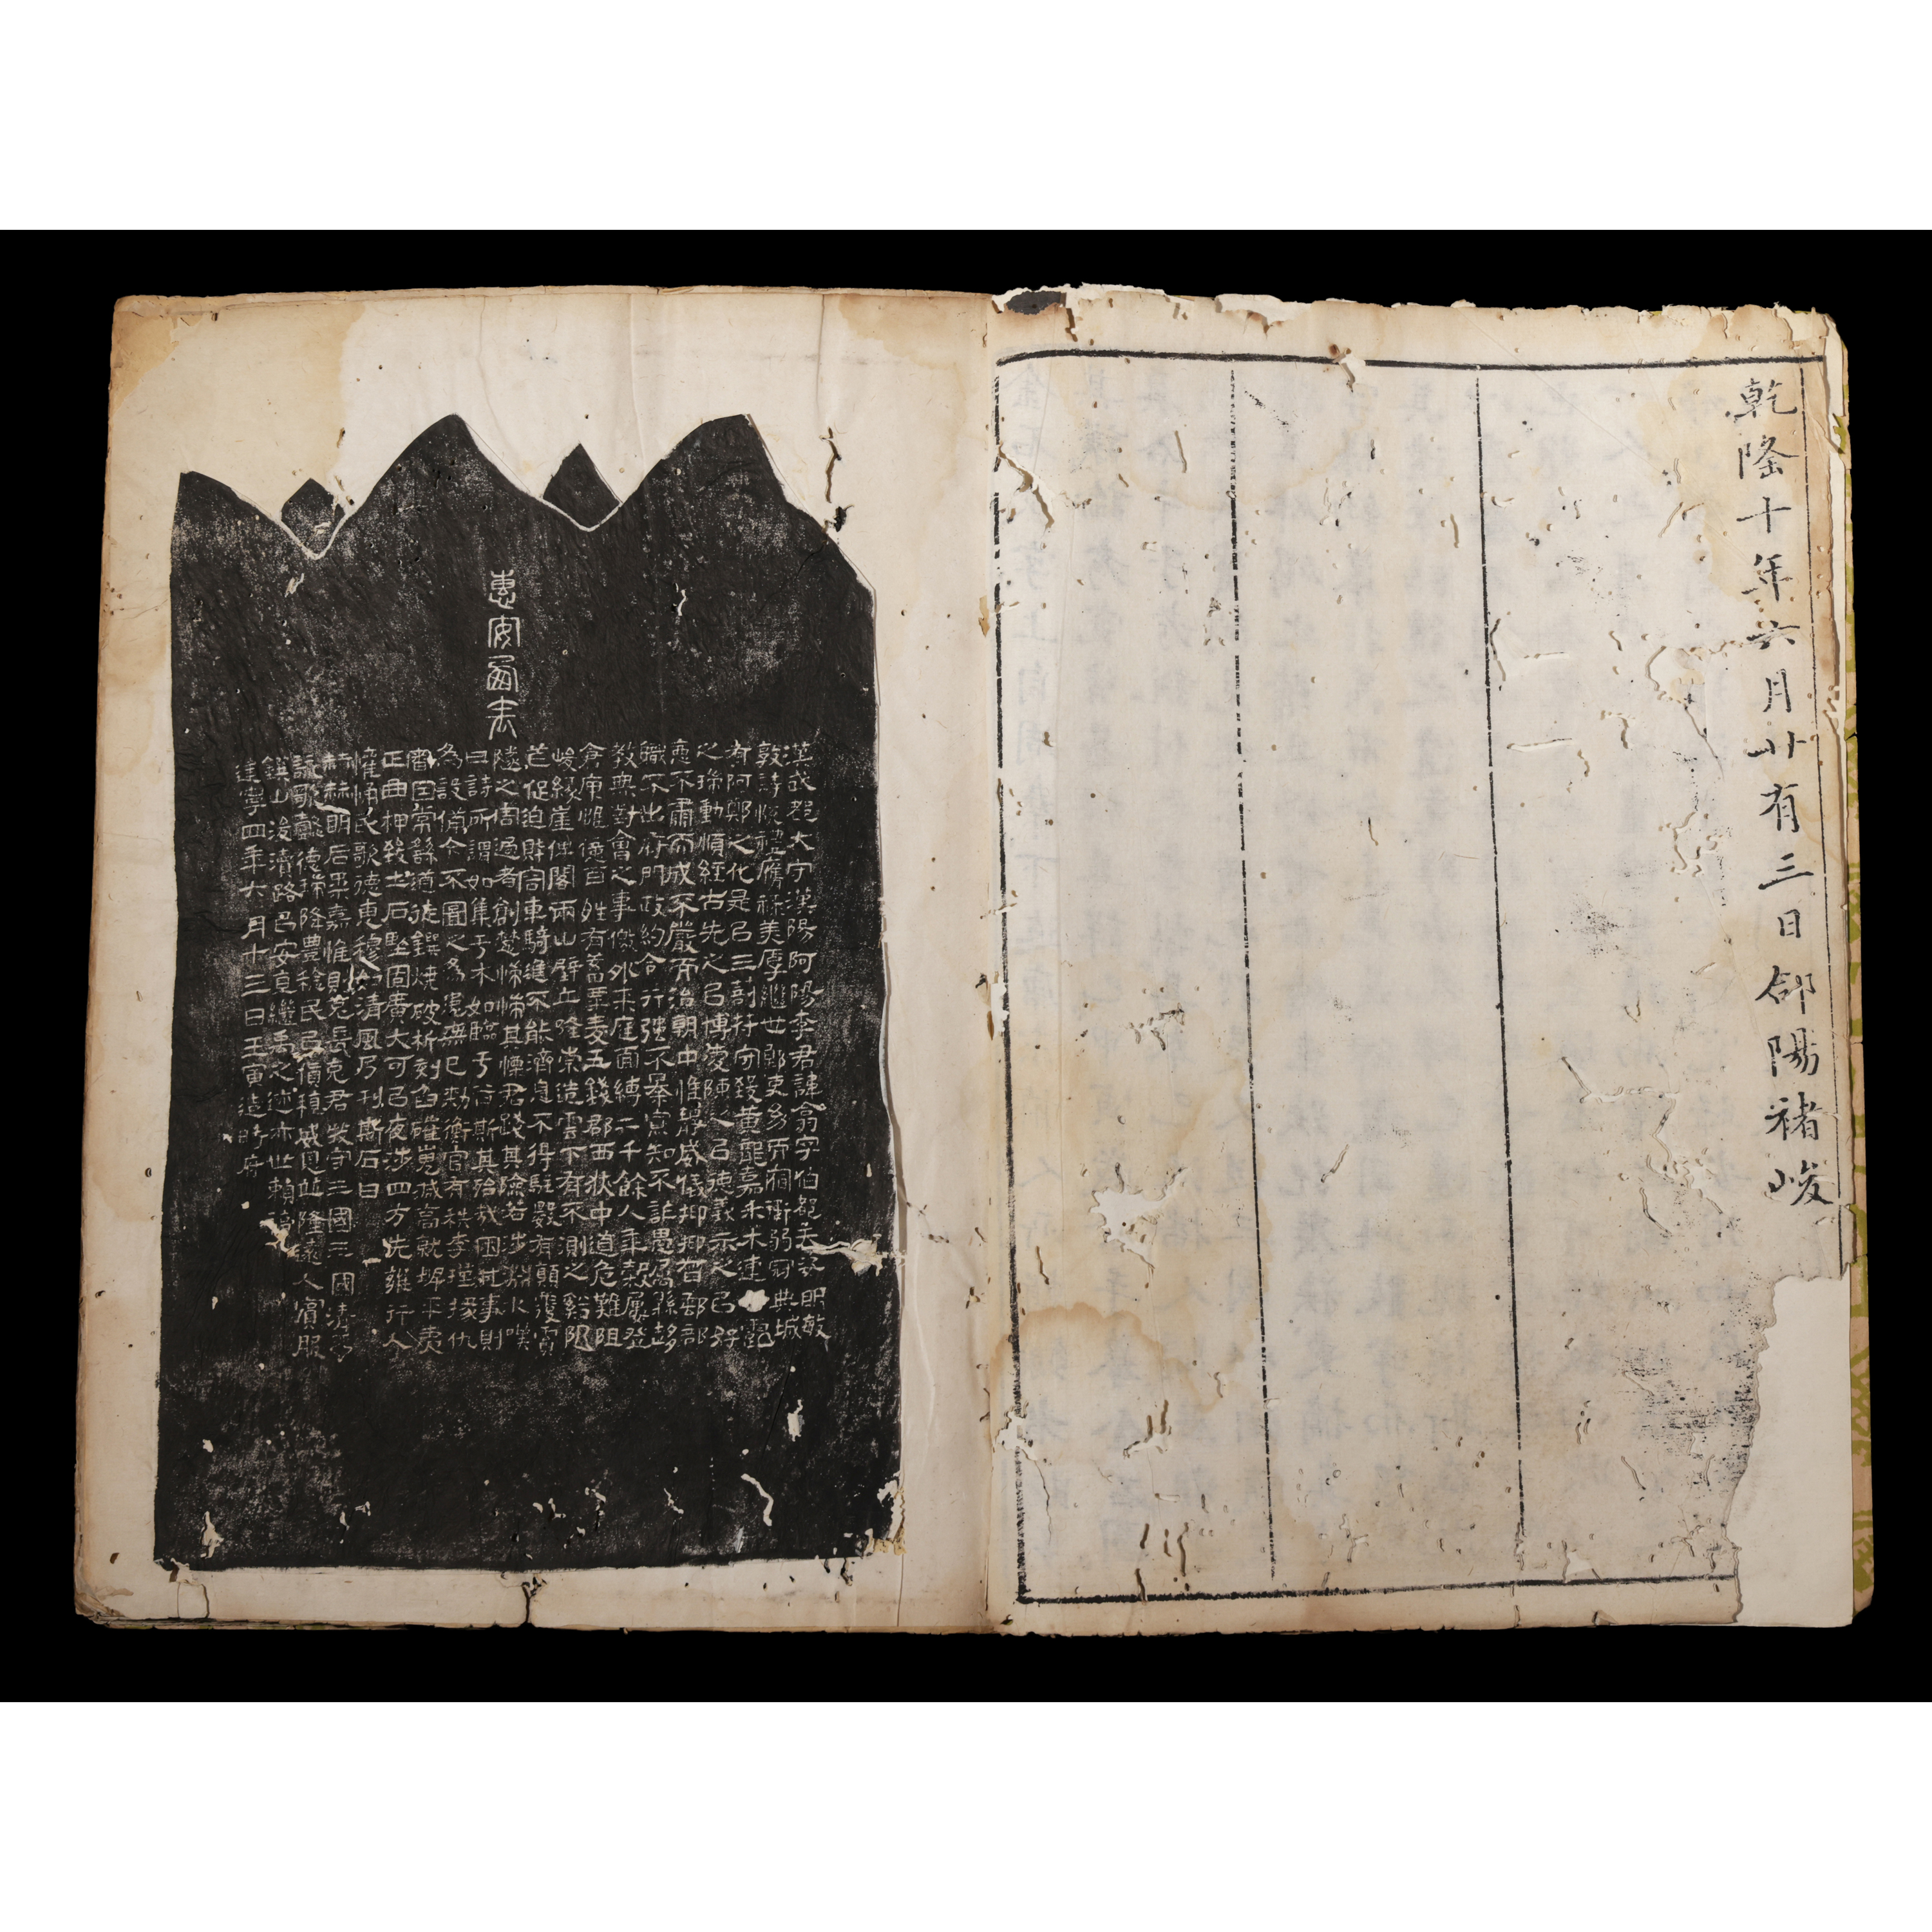 乾隆十年六月廿有三日郃陽褚峻
惠安西表
漢武都大守漢陽阿陽李君諱翕字伯都天姿明敏
敦詩悅禮膺祿美厚繼世郎吏幼而宿衛弱冠典城
有阿鄭之化是以三剖符守致黃龍嘉禾木連露
之瑞動順經古先之以博愛陳之以德義示之以好
惡不肅而成不嚴而治朝中惟靜威儀抑抑督郵部
職不出府門政約令行強不暴寡知不詐愚屬縣趍
教無對會之事儌外來庭面縛二千餘人年穀屢登
倉庾惟億百姓有蓄粟麥五錢郡西狹中道危難阻
峻緣崖俾閣兩山壁立隆崇造雲下有不測之谿阨
芒促迫財容車騎進不能濟息不得駐數有顛覆霣
隧之害過者創楚惴惴其慄君踐其險若涉淵冰嘆
曰詩所謂如集于木如臨于谷斯其殆哉困其事則
為設備今不圖之為患無已勑衡官有秩李瑾掾仇
審因常繇道徒鐉燒破析刻臽磪嵬減高就埤平夷
正曲柙致土石堅固廣大可以夜涉四方无雍行人
懽悀民歌德惠穆如清風乃刊斯石曰
赫赫明后柔嘉惟則克長克君牧守三國三國清平
詠歌懿德瑞降豐稔民以貨稙威恩並隆遠人賓服
鐫山浚瀆路以安直繼禹之迹亦世賴福
建寧四年六月十三日壬寅造時府